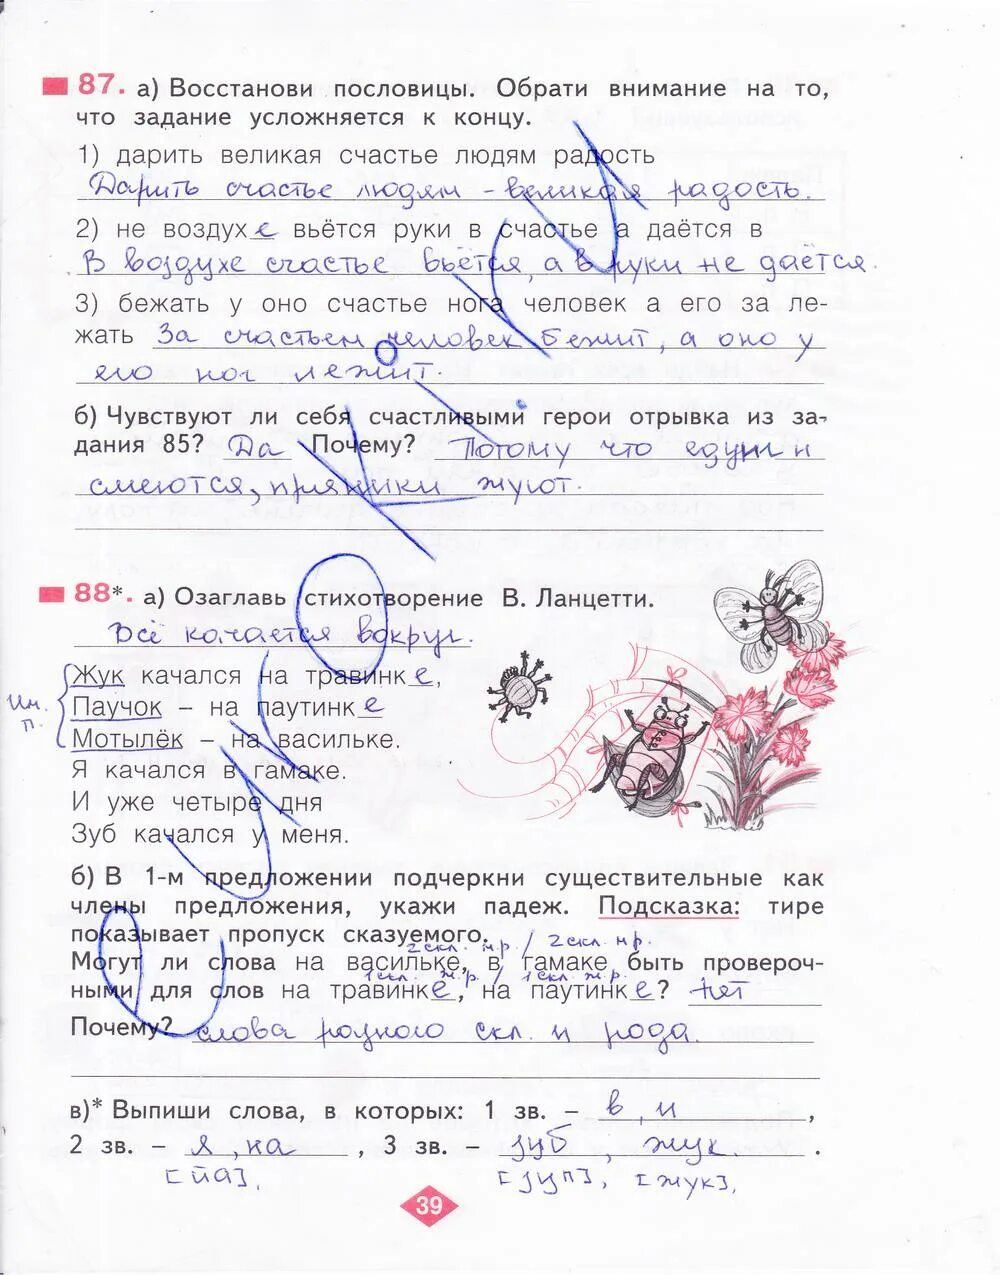 87. а) Восстанови пословицы. Обрати внимание на то,
что задание усложняется к концу.
1) дарить великая счастье людям радость
Дарить счастье людям – великая радость.
2) не воздухе вьётся руки в счастье а даётся в
В воздухе счастье вьётся, а в руки не даётся.
3) бежать у оно счастье нога человек а его за ле-
жать За счастьем человек бежит, а оно у
его ног лежит.
б) Чувствуют ли себя счастливыми герои отрывка из за-
дания 85? Да Почему? Потому что едут и
смеются, пряники жуют.
88*. а) Озаглавь стихотворение В. Ланцетти.
Всё качается вокруг.
Жук качался на травинке,
Им. п.
Паучок – на паутинке
Мотылёк – на васильке.
Я качался в гамаке.
И уже четыре дня
Зуб качался у меня.
б) В 1-м предложении подчеркни существительные как
члены предложения, укажи падеж. Подсказка: тире
показывает пропуск сказуемого.
2 скл. м.р. / 2 скл. м.р.
Могут ли слова на васильке, в гамаке быть провероч-
1 скл. ж.р. / 1 скл. ж.р.
ными для слов на травинке, на паутинке? Нет
Почему? слова разного скл. и рода.
в)* Выпиши слова, в которых: 1 зв. – в, и,
2 зв. – я, на, 3 зв. – зуб, жук.
[йа], [зуп], [жук],
39
e uroki.ru